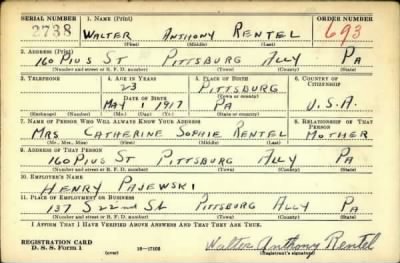 SERIAL NUMBER 1. NAME (Print) ORDER NUMBER
2738 WALTER ANTHONY RENTEL 693
(First) (Middle) (Last)
2. ADDRESS (Print)
160 PIUS ST PITTSBURG ALLY PA
(Number and street or R. F. D. number) (Town) (County) (State)
3. TELEPHONE 4. AGE IN YEARS 5. PLACE OF BIRTH 6. COUNTRY OF CITIZENSHIP
23 PITTSBURG
DATE OF BIRTH (Town or county)
MAY 1 1917 PA U.S.A.
(Exchange) (Number) (Mo.) (Day) (Yr.) (State or country)
7. NAME OF PERSON WHO WILL ALWAYS KNOW YOUR ADDRESS 8. RELATIONSHIP OF THAT PERSON
MRS CATHERINE SOPHIE RENTEL MOTHER
(Mr., Mrs., Miss) (First) (Middle) (Last)
9. ADDRESS OF THAT PERSON
160 PIUS ST PITTSBURG ALLY PA
(Number and street or R. F. D. number) (Town) (County) (State)
10. EMPLOYER'S NAME
HENRY PAJEWSKI
11. PLACE OF EMPLOYMENT OR BUSINESS
137 S 22nd St PITTSBURG ALLY PA
(Number and street or R. F. D. number) (Town) (County) (State)
I AFFIRM THAT I HAVE VERIFIED ABOVE ANSWERS AND THAT THEY ARE TRUE.
REGISTRATION CARD Walter Anthony Rentel
D. S. S. Form 1 (over) (Registrant's signature)